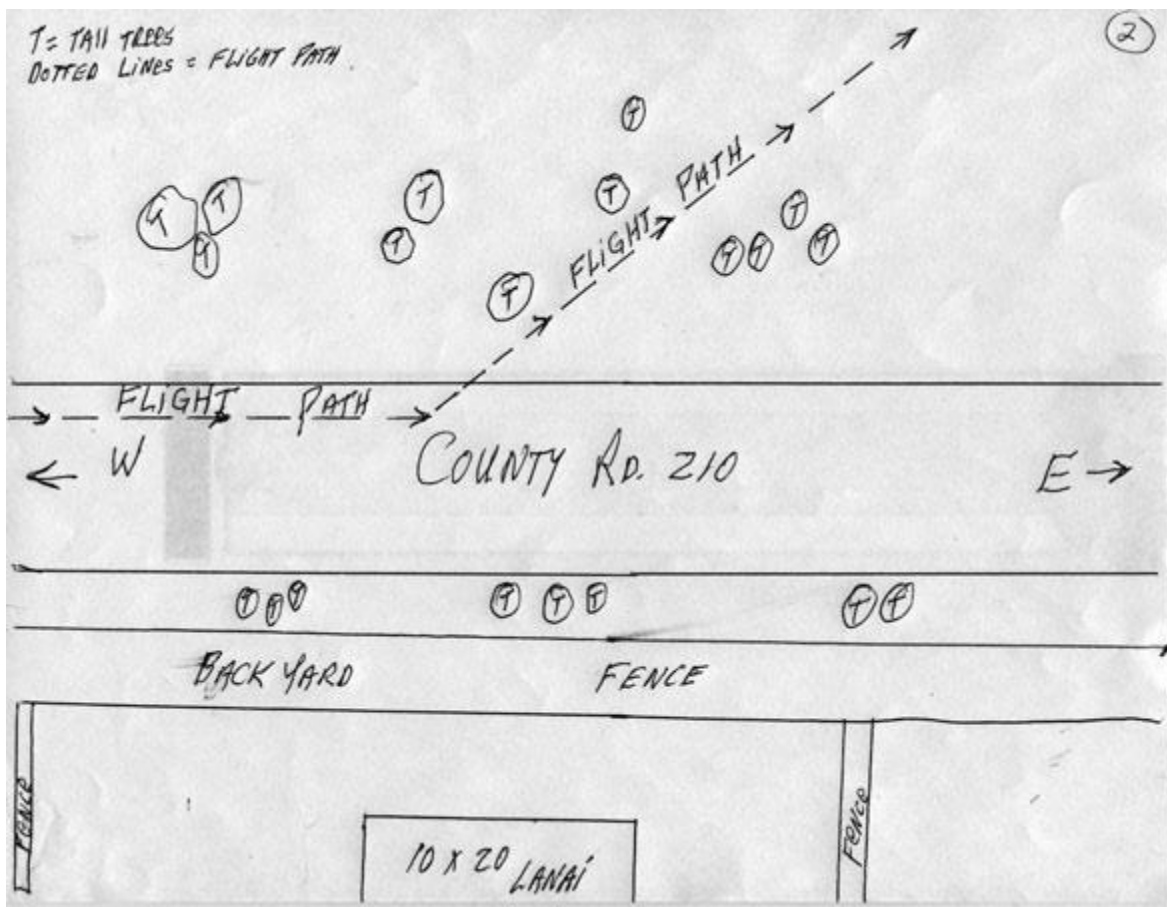 T = TAll TREES
DOTTED LINES = FLIGHT PATH.
2
T
T
T
T
T
T
T
T
FLIGHT PATH
T
T
T
T
T
FLIGHT PATH
W
COUNTY RD. 210
E
T T T
T T T
T T
BACK YARD FENCE
FENCE
FENCE
10 X 20 LANAI